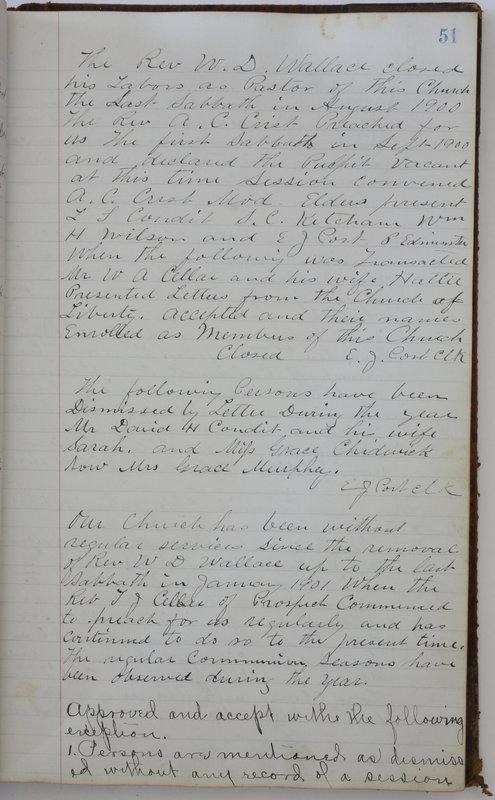 51
The Rev W. D. Wallace closed
his Labors as Pastor of This Church
the Last Sabbath in August 1900
The Rev A. C. Crist Preached for
us The first Sabbath in Sept 1900
and declared the Pulpit Vacant
at this time Session convened
A. C. Crist Mod. Elders present
L S Condit S. C. Ketcham Wm
H Wilson and E J Cost P Edminster
When the following was Transacted
Mr W A Cellar and his wife Hattie
Presented Letters from the Church of
Liberty. accepted and their names
Enrolled as Members of this Church
Closed E. J. Cost Clk
The following Persons have been
Dismissed by Letter During the year
Mr David H Condit and his wife
Sarah. and Miss Grace Chidwick
Now Mrs Grace Murphey.
E J Cost Clk
Our Church has been without
regular services since the removal
of Rev. W D Wallace up to the last
Sabbath in January 1901 When the
Rev T J Cellar of Prospect Commenced
to preach for us regularly and has
continued to do so to the present time.
The regular Communion Seasons have
been observed during the year.
Approved and accept withe the following
exception.
1. Persons are mentioned as dismiss
ed without any record of a session